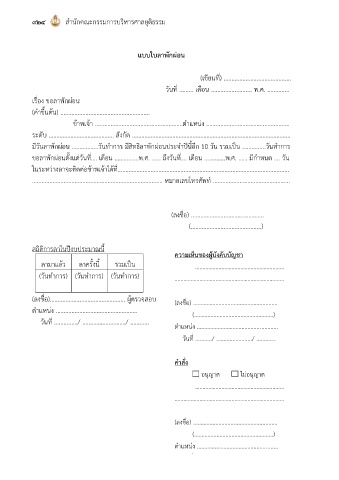 ๓๒๔ สำนักคณะกรรมการบริหารศาลยุติธรรม
แบบใบลาพักผ่อน
(เขียนที่) ........................................
วันที่ ......... เดือน ......................... พ.ศ. .............
เรื่อง ขอลาพักผ่อน
(คำขึ้นต้น) ......................................................
ข้าพเจ้า .....................................................ตำแหน่ง ...................................................
ระดับ ........................................ สังกัด ................................................................................................
มีวันลาพักผ่อน ................วันทำการ มีสิทธิลาพักผ่อนประจำปีนี้อีก 10 วัน รวมเป็น ...............วันทำการ
ขอลาพักผ่อนตั้งแต่วันที่.... เดือน ...............พ.ศ. ...... ถึงวันที่.... เดือน ..............พ.ศ. ...... มีกำหนด .... วัน
ในระหว่างลาจะติดต่อข้าพเจ้าได้ที่.........................................................................................................
............................................................................... หมายเลขโทรศัพท์ ...............................................
(ลงชื่อ) .............................................
(.............................................)
สถิติการลาในปีงบประมาณนี้
ลามาแล้ว ลาครั้งนี้ รวมเป็น
(วันทำการ) (วันทำการ) (วันทำการ)
(ลงชื่อ).............................................. ผู้ตรวจสอบ
ตำแหน่ง ..................................................
วันที่ ............../ ........................../ ............
ความเห็นของผู้บังคับบัญชา
......................................................
..................................................................
(ลงชื่อ) ...................................................
(................................................)
ตำแหน่ง .................................................
วันที่ ........../ ....................../ ............
คำสั่ง
☐ อนุญาต ☐ ไม่อนุญาต
......................................................
..................................................................
(ลงชื่อ) ...................................................
(................................................)
ตำแหน่ง .................................................